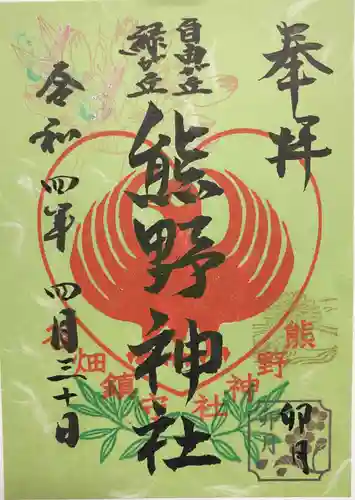 奉拝
自由が丘
緑が丘
熊野神社
令和四年四月三十日
熊野神社
畑鎮守
卯月
卯月